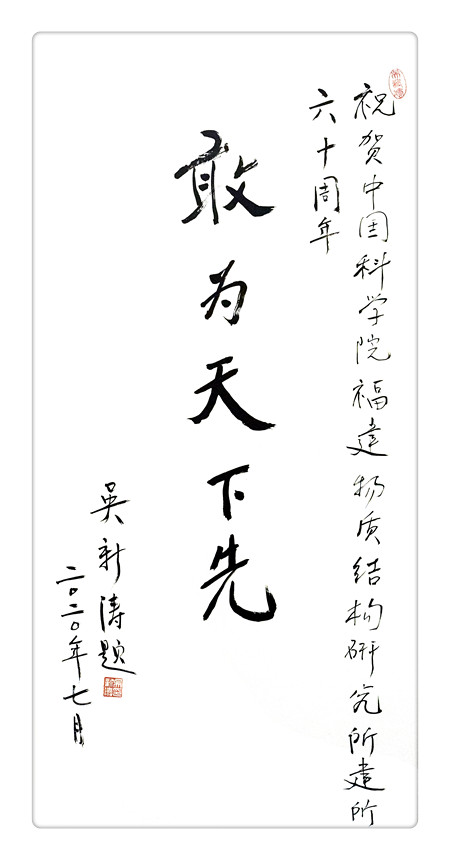 祝贺中国科学院福建物质结构研究所建所
六十周年
敢为天下先
吴新涛题
二〇二〇年七月